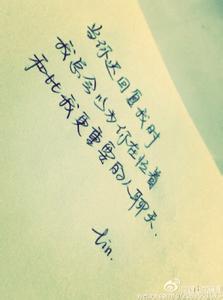 当你迟回复我时
我总会以为你在陪着
和比我更重要的人聊天.
lin.